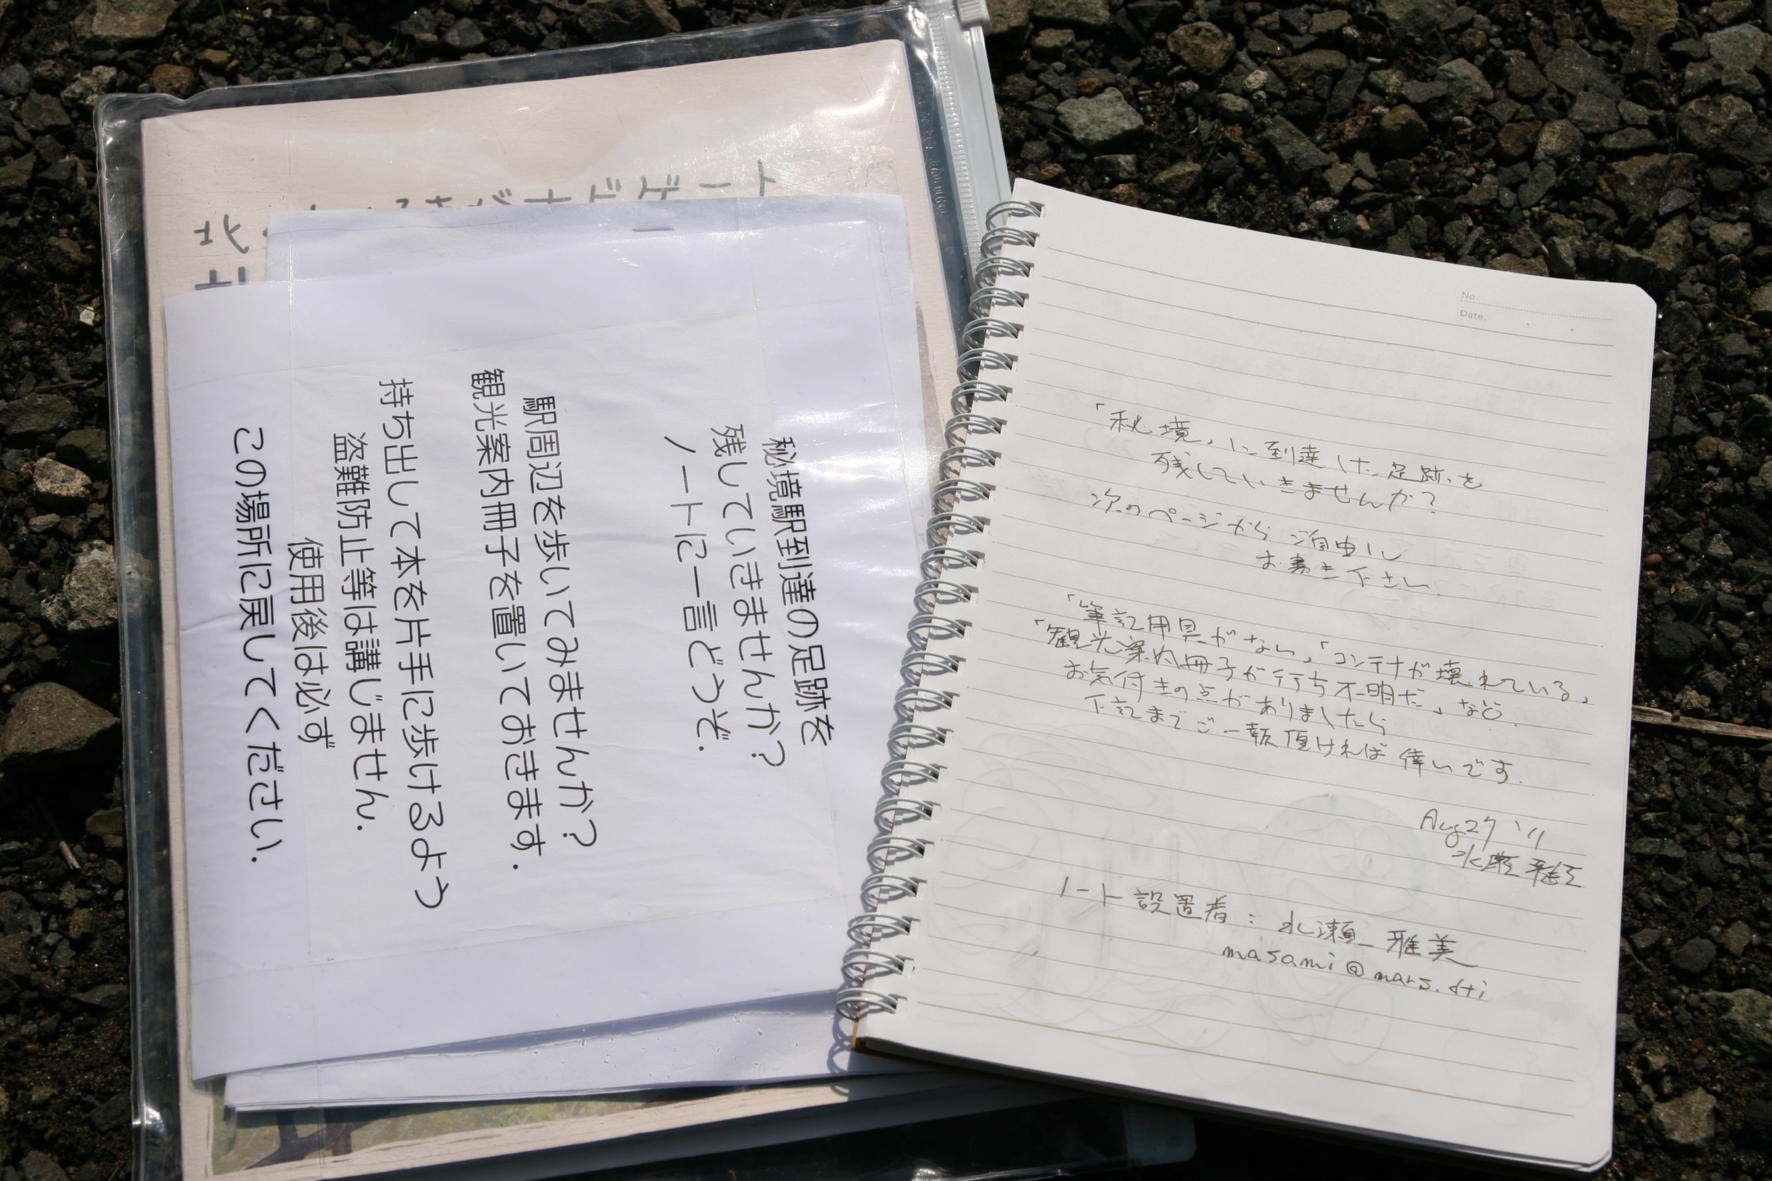 秘境駅到達の足跡を
残していきませんか？
ノートに一言どうぞ.
駅周辺を歩いてみませんか？
観光案内冊子を置いておきます.
持ち出して本を片手に歩けるよう
盗難防止等は講じません.
使用後は必ず
この場所に戻してください.
No.
Date.
「秘境」に到達した足跡を
残していきませんか？
次のページからご自由に
お書き下さい.
「筆記用具がない」「コンテナが壊れている」
「観光案内冊子が行方不明だ」など.
お気付きの点がありましたら
下記までご一報頂ければ幸いです.
Aug27 '11
ノート設置者：水瀬 雅美
masami@mars.dti